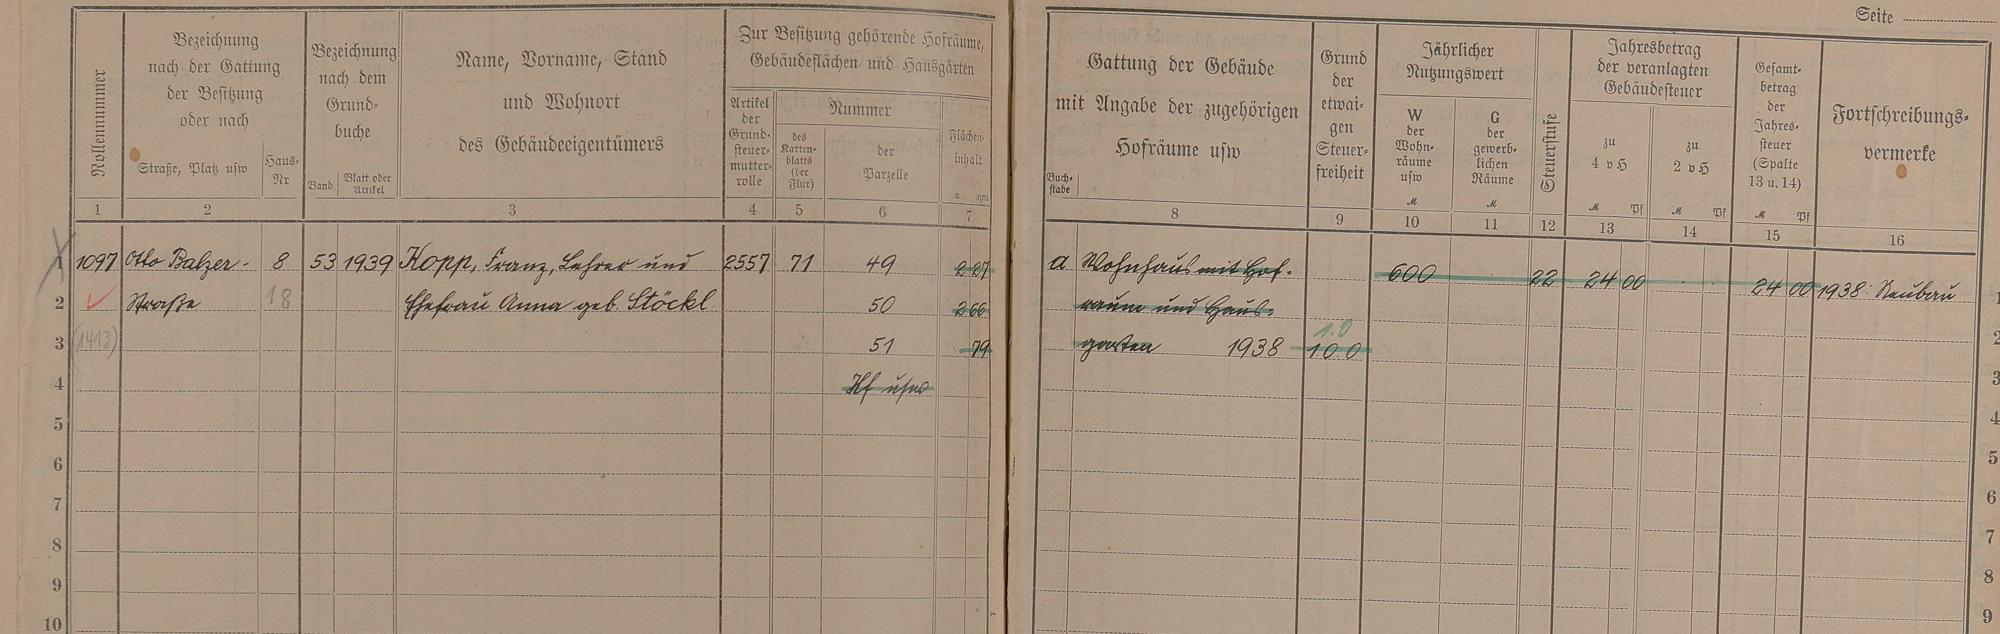 Seite
Rollennummer
Bezeichnung
nach der Gattung
der Besitzung
oder nach
Straße, Platz usw
Haus-
Nr
Bezeichnung
nach dem
Grund-
buche
Band
Blatt oder
Artikel
Name, Vorname, Stand
und Wohnort
des Gebäudeeigentümers
Zur Besitzung gehörende Hofräume,
Gebäudeflächen und Hausgärten
Artikel
der
Grund-
steuer-
mutter-
rolle
Nummer
des
Karten-
blatts
(der
Flur)
der
Parzelle
Flächen-
inhalt
a qm
Gattung der Gebäude
mit Angabe der zugehörigen
Hofräume usw
Buch-
stabe
Grund
der
etwai-
gen
Steuer-
freiheit
Jährlicher
Nutzungswert
W
der
Wohn-
räume
usw
M
G
der
gewerb-
lichen
Räume
M
Steuerstufe
Jahresbetrag
der veranlagten
Gebäudesteuer
zu
4 v H
M Pf
zu
2 v H
M Pf
Gesamt-
betrag
der
Jahres-
steuer
(Spalte
13 u. 14)
M Pf
Fortschreibungs-
vermerke
1 2 3 4 5 6 7 8 9 10 11 12 13 14 15 16
1 1097 Otto Balzer- 8 53 1939 Kopp, Franz, Lehrer und 2557 71 49 2 27 a Wohnhaus mit Hof- 600 22 24 00 24 00 1938: Neubau 1
2 Straße 18 Ehefrau Anna geb. Stöckl 50 2 66 raum und Haus- 2
1.0
3 (1413) 51 79 garten 1938 100 3
4 Hf usw 4
5 5
6 6
7 7
8 8
9 9
10